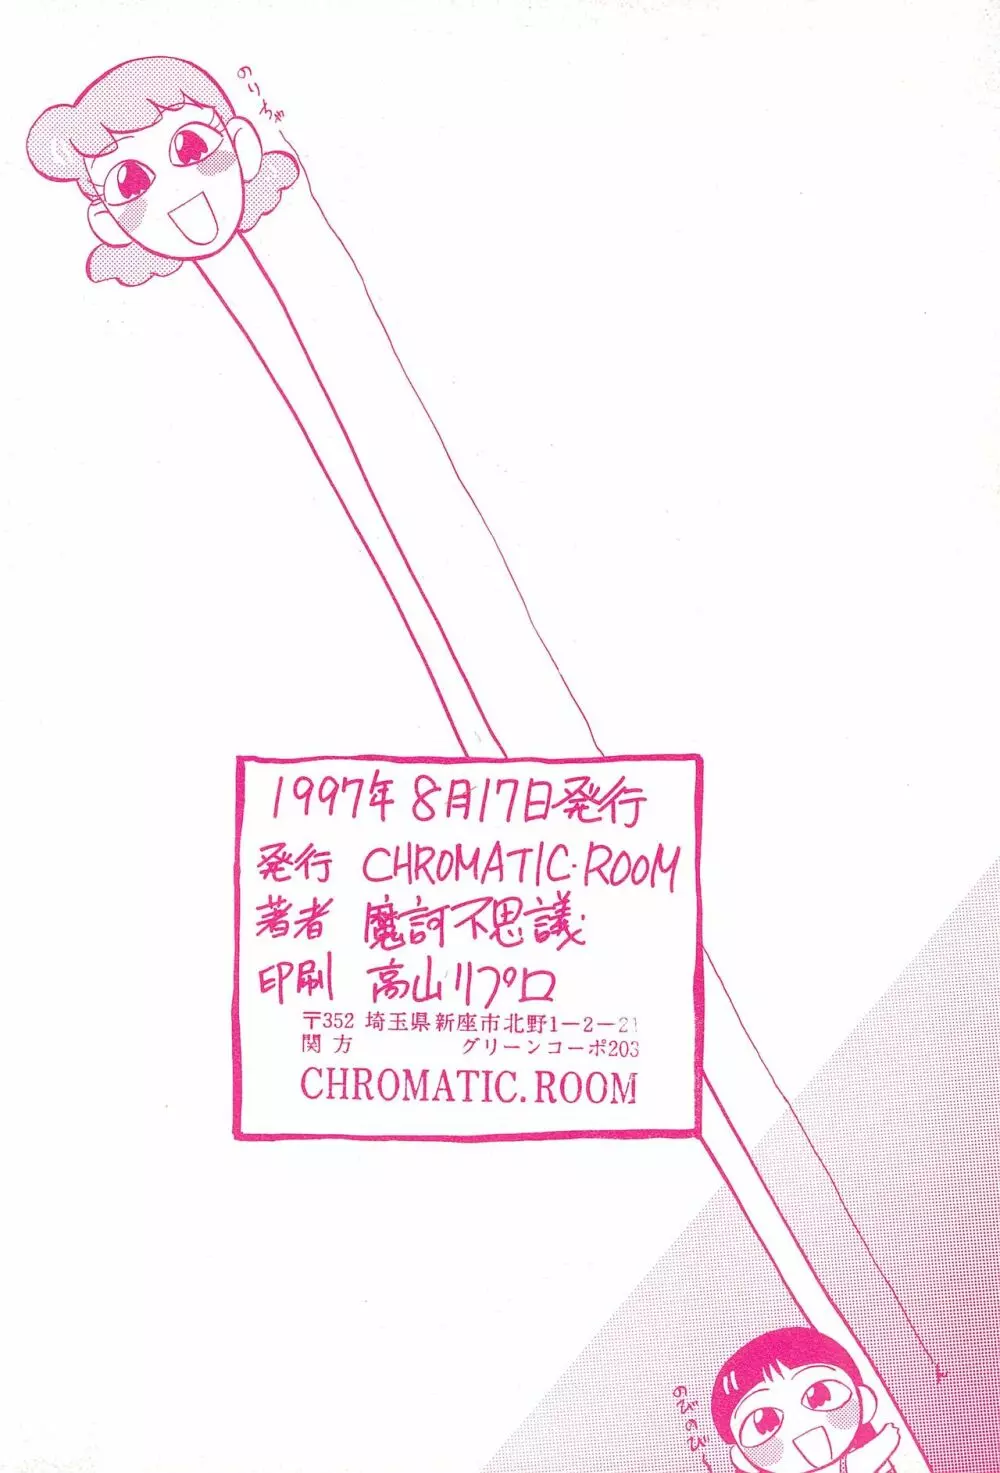 のりちゃーん
1997年8月17日発行
発行 CHROMATIC・ROOM
著者 魔訶不思議
印刷 高山リプロ
〒352 埼玉県新座市北野1−2−21
関方 グリーンコーポ203
CHROMATIC.ROOM
のびのび〜